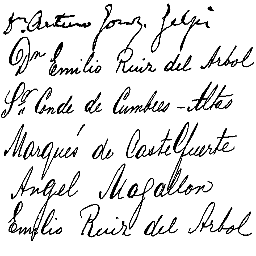 Dr. Arturo Gonz. Gelpi
Dn Emilio Ruiz del Arbol
Sr. Conde de Cumbres-Altas
Marqués de Castelfuerte
Angel Magallon
Emilio Ruiz del Arbol